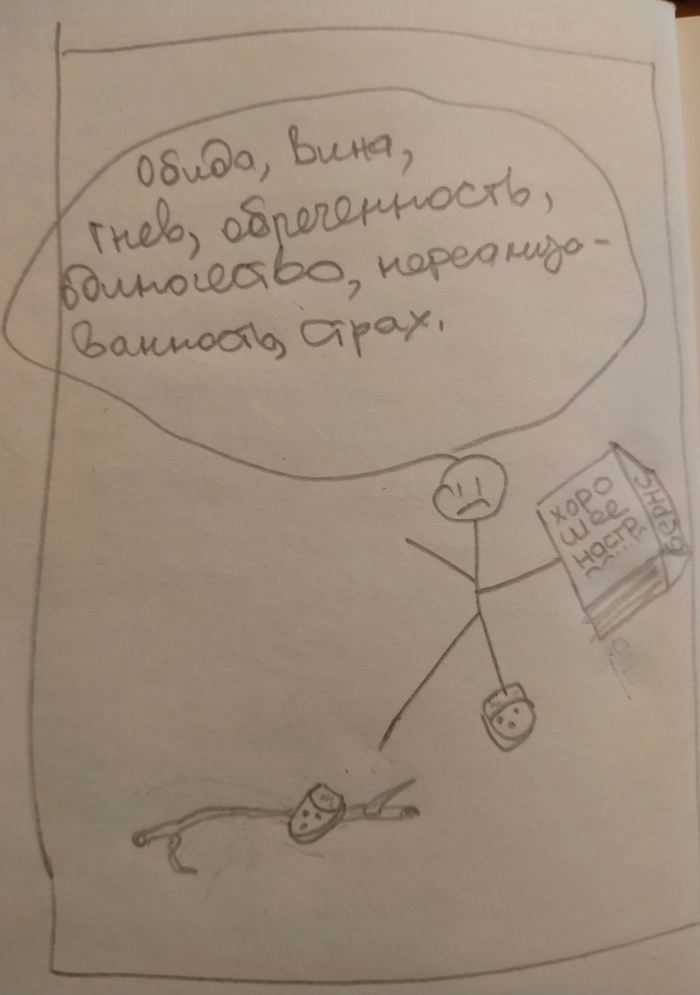 Обида, вина,
гнев, обреченность,
одиночество, нереализо-
ванность, страх.
хоро
шее
настр.
Бернс